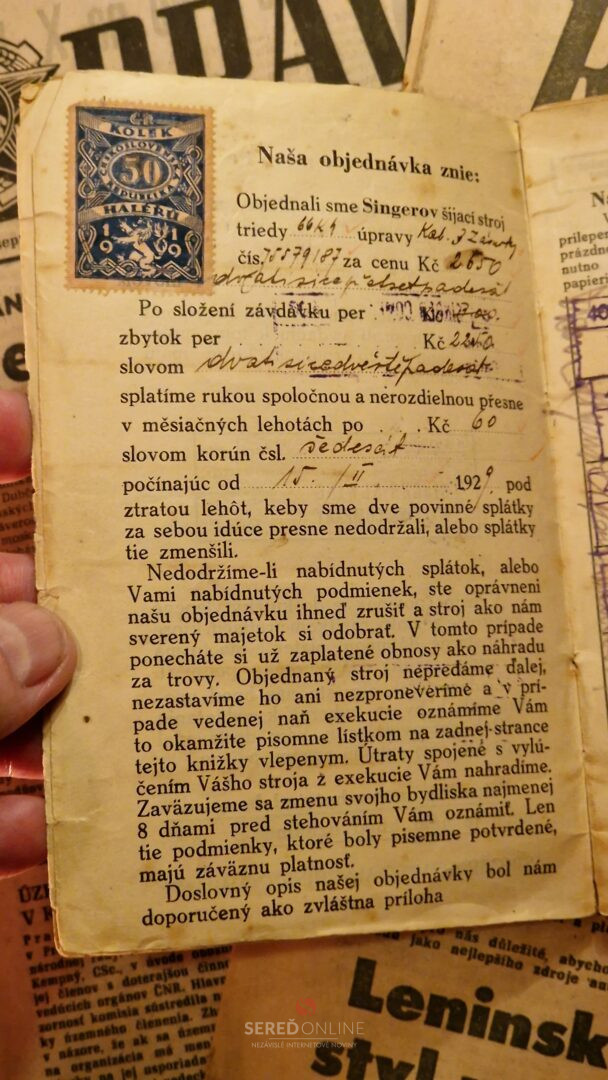 KOLEK
ČESKOSLOVENSKÁ
50
REPUBLIKA
HALÉŘŮ
1919
Naša objednávka znie:
Objednali sme Singerov šijací stroj
triedy 66K9 úpravy Kab. 3 Zásuvky
čís. za cenu Kč 2650
Po složení závdavku per Kč
zbytok per Kč 2250
slovom
splatíme rukou spoločnou a nerozdielnou přesne
v měsiačných lehotách po Kč 60
slovom korún čsl. šedesát
počínajúc od 15./II. 1929 pod
ztratou lehôt, keby sme dve povinné splátky
za sebou idúce presne nedodržali, alebo splátky
tie zmenšili.
Nedodržíme-li nabídnutých splátok, alebo
Vami nabídnutých podmienek, ste oprávneni
našu objednávku ihneď zrušiť a stroj ako nám
sverený majetok si odobrať. V tomto prípade
ponecháte si už zaplatené obnosy ako náhradu
za trovy. Objednaný stroj nepředáme ďalej,
nezastavíme ho ani nezproneveríme a v prí-
pade vedenej naň exekucie oznámíme Vám
to okamžite pisomne lístkom na zadnej strance
tejto knižky vlepenym. Útraty spojené s vylú-
čením Vášho stroja z exekucie Vám nahradíme.
Zaväzujeme sa zmenu svojho bydliska najmenej
8 dňami pred stehováním Vám oznámiť. Len
tie podmienky, ktoré boly pisemne potvrdené,
majú záväznu platnosť.
Doslovný opis našej objednávky bol nám
doporučený ako zvláštna príloha
prilepen
prázdno
nutno
papieri
Leninsk
jako nejlepšího zdroje
nás důležité, abycho
členov s doterajšou činn
vedúcich orgánov ČNR.
sornosť komisia sústredila
ky územného členenia.
v názore, že ak sa územ
na organizácia má men
SEREĎONLINE
NEZÁVISLÉ INTERNETOVÉ NOVINY